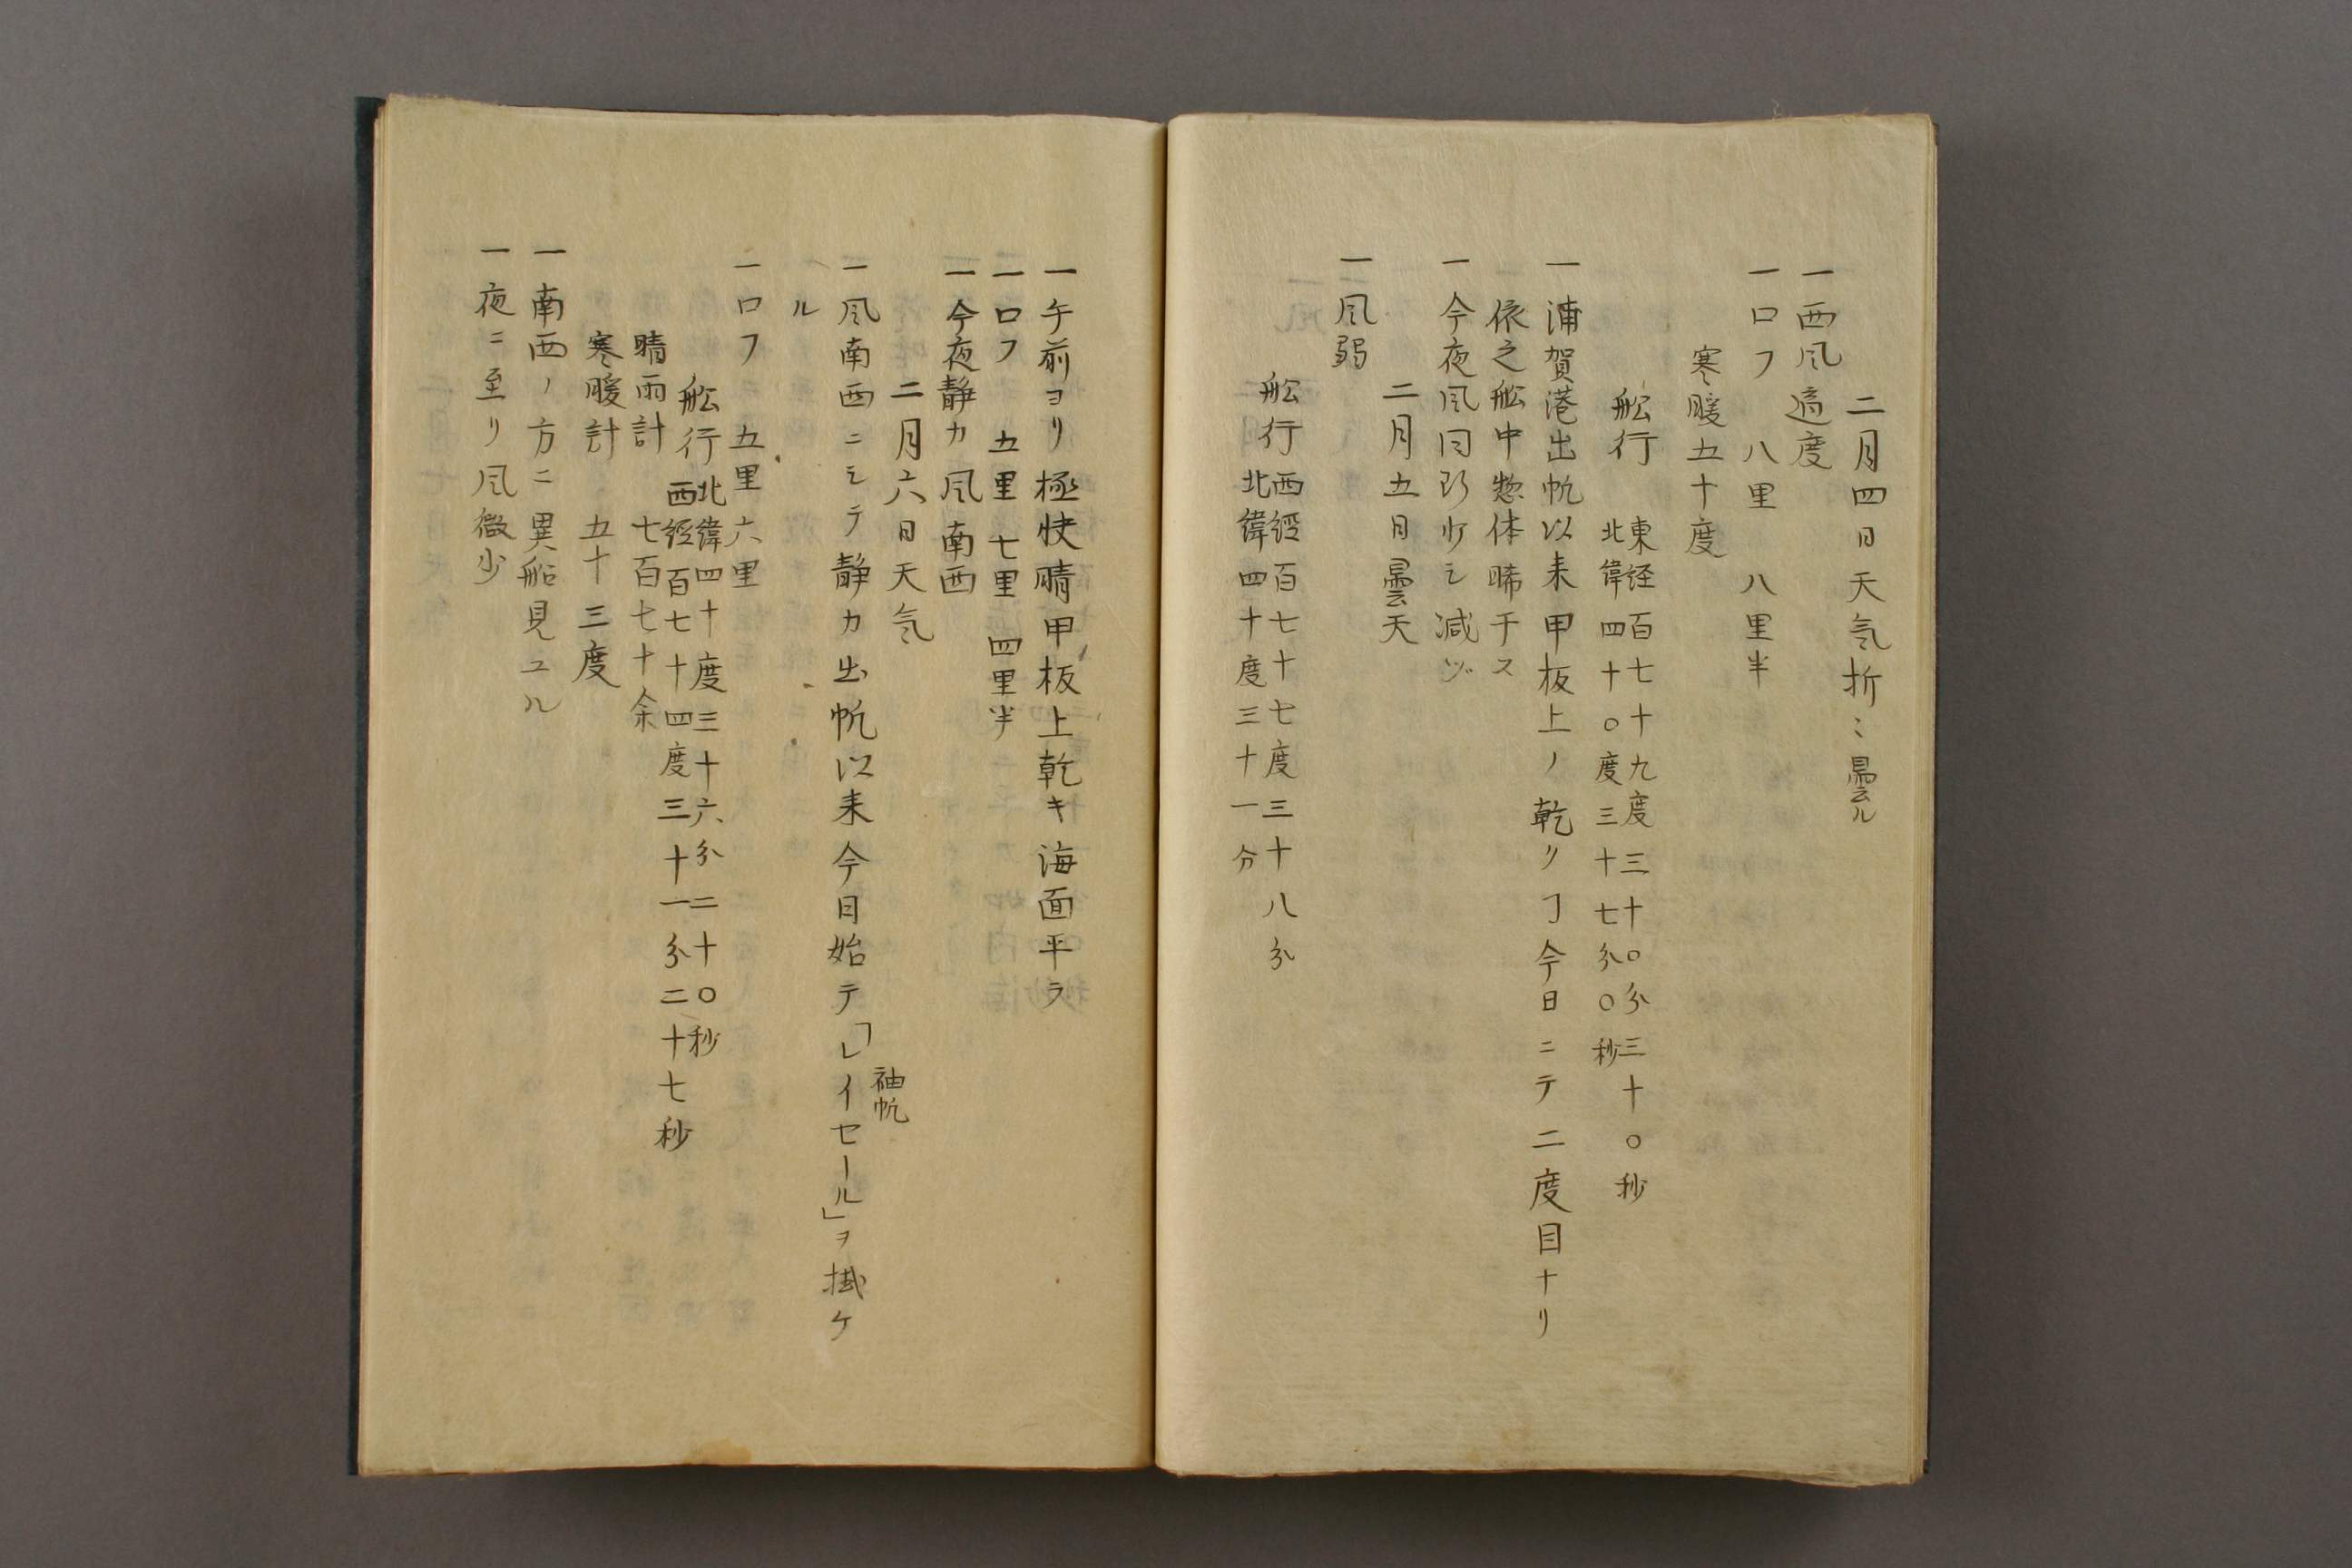 二月四日天気折〻曇ル
一西風適度
一ロフ 八里 八里半
寒暖五十度
舩行 東経百七十九度三十〇分三十〇秒
北緯四十〇度三十七分〇秒
一浦賀港出帆以来甲板上ノ乾クヿ今日ニテ二度目ナリ
依之舩中惣体晞干ス
一今夜風同断少シ減ヅ
二月五日曇天
一風弱
舩行 西經百七十七度三十八分
北緯四十度三十一分
一午前ヨリ極快晴甲板上乾キ海面平ラ
一ロフ 五里 七里 四里半
一今夜静カ風南西
二月六日天気
一風南西ニシテ静カ出帆以来今日始テ「レイセール」ヲ掛ケ
袖帆
ル
一ロフ 五里 六里
舩行 北緯四十度三十六分二十〇秒
西經百七十四度三十一分二十七秒
晴雨計 七百七十余
寒暖計 五十三度
一南西ノ方ニ異船見ユル
一夜ニ至リ風微少